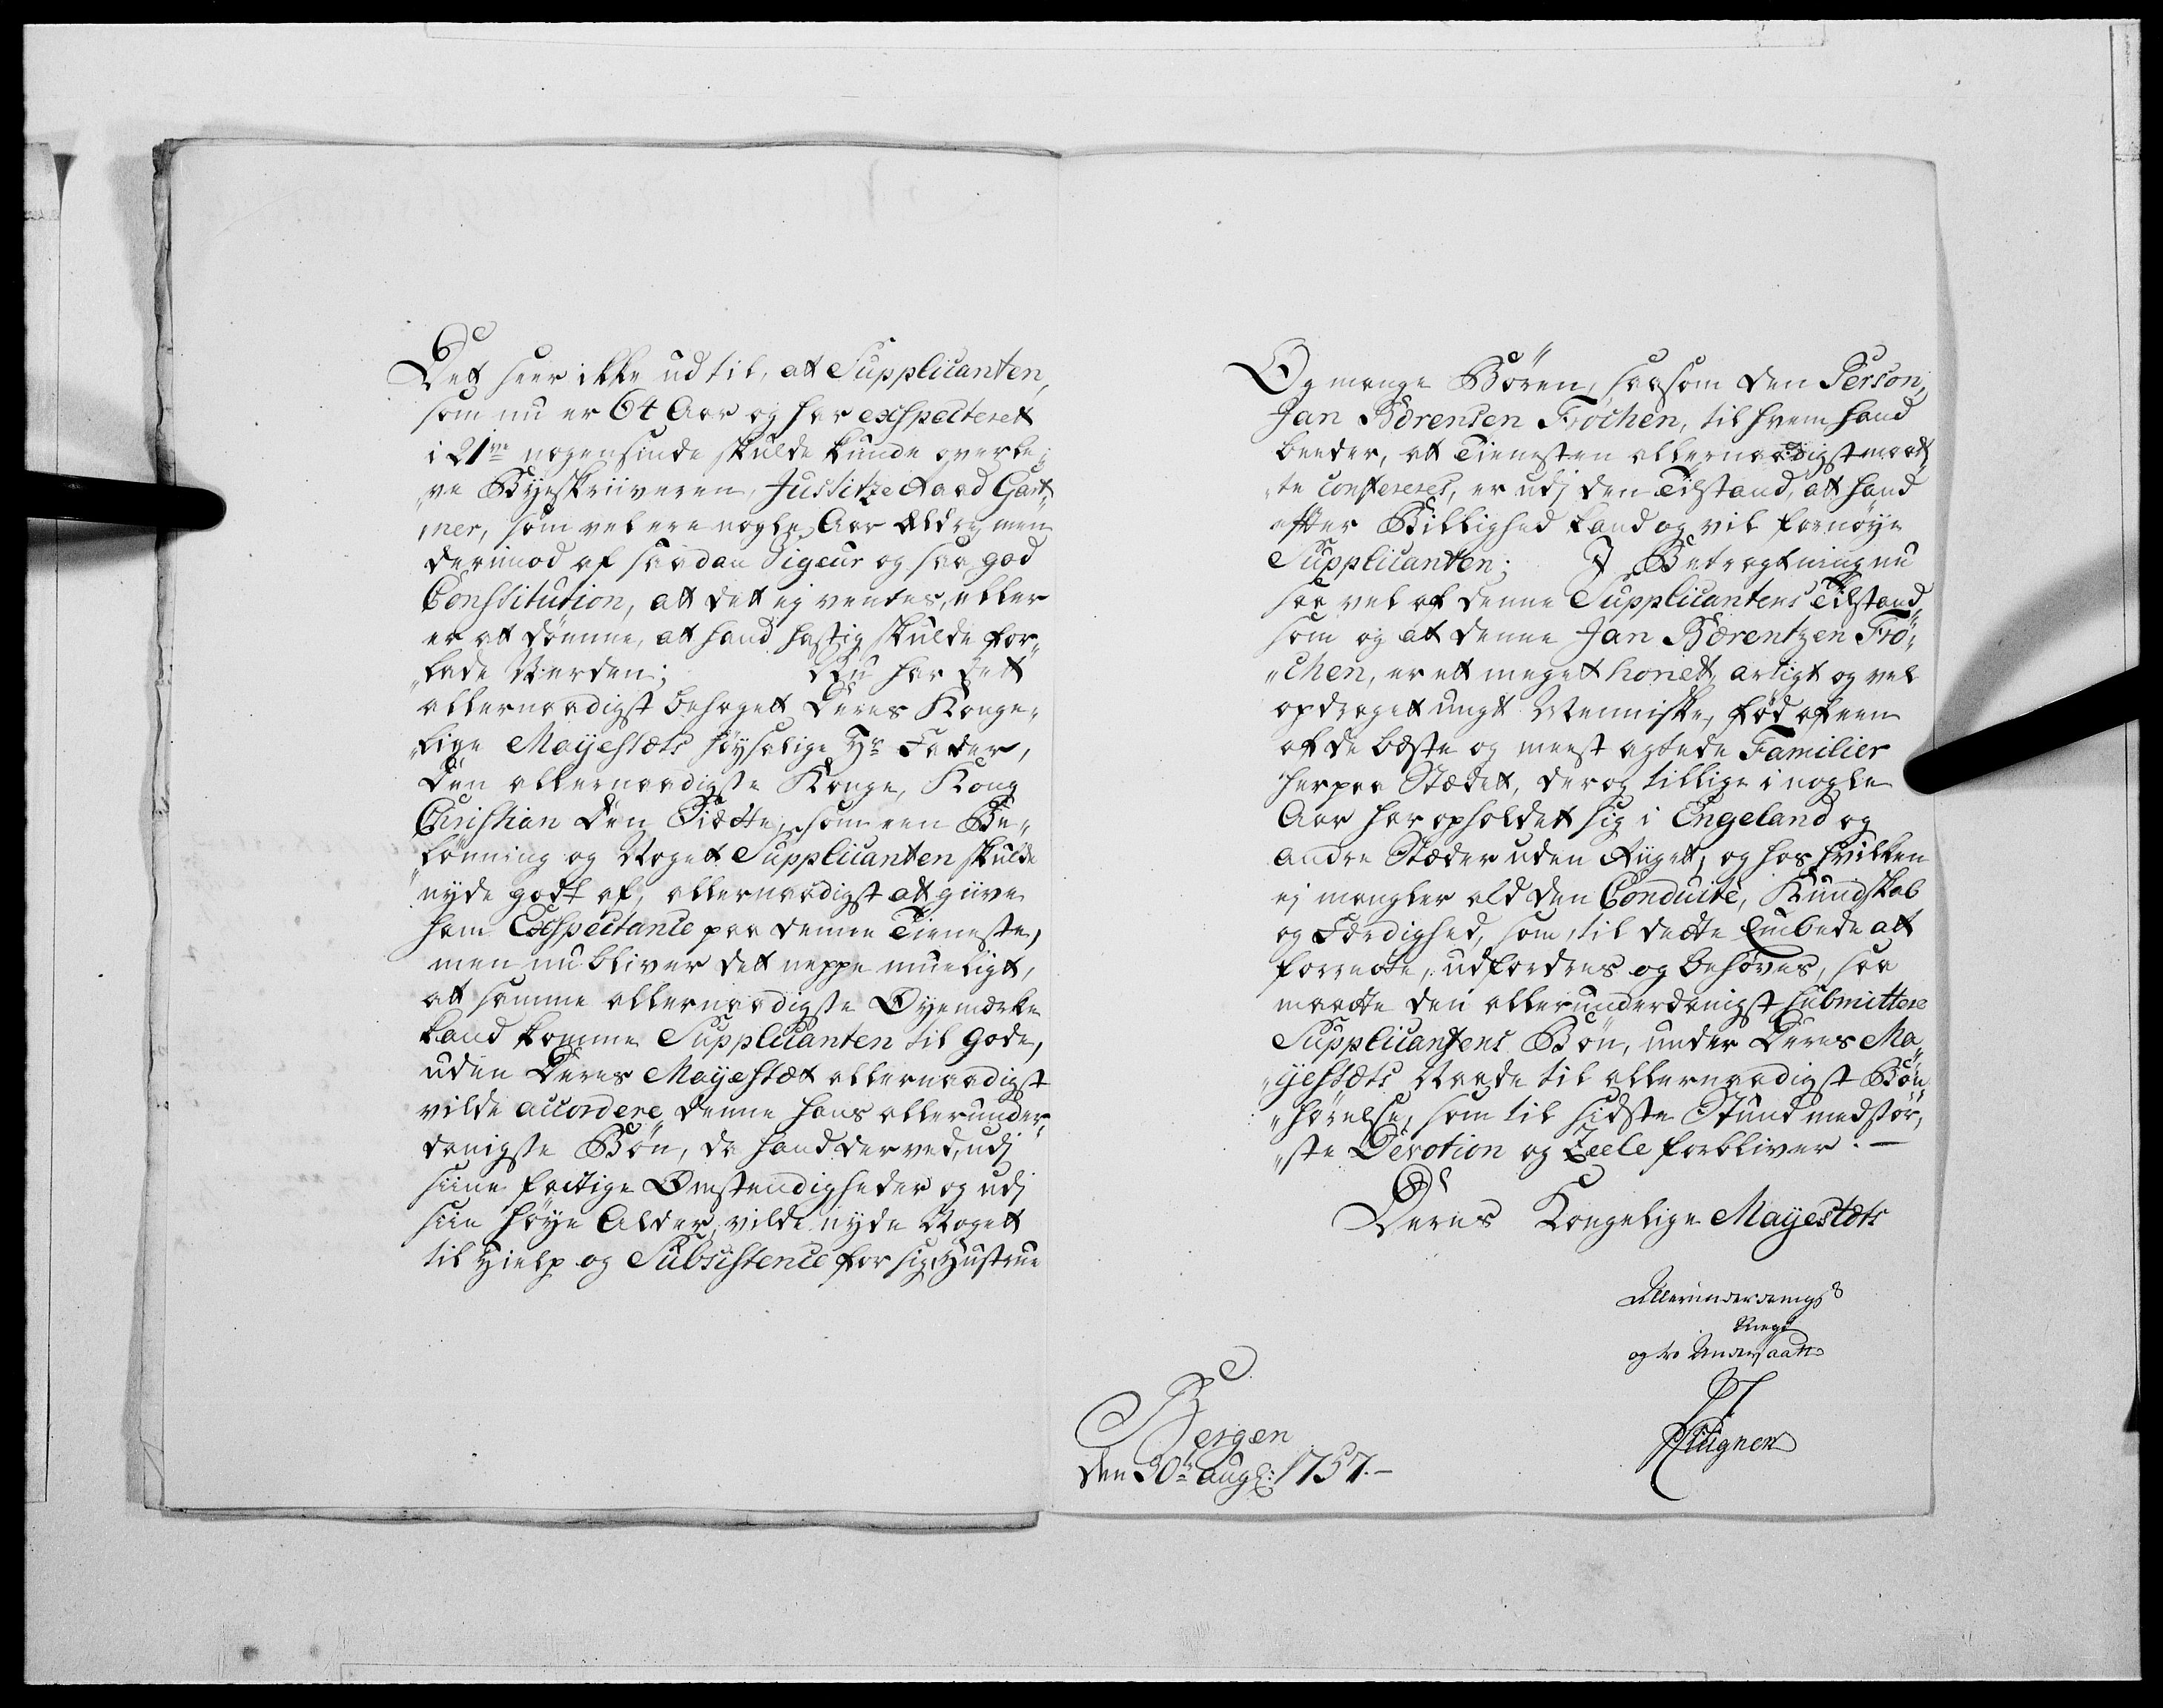 Det seer ikke ud til, at Supplicanten,
som nu er 64 Aar og har exspecteret
i 21ve nogensinde skulde kunde overle„
„ve Byeskriiveren, Justitze Raad Gart„
„ner, som vel ere nogle Aar Ældre, men
derimod af saadan Vigeur og saa god
Constitution, att det ej ventes, eller
er att dømme, at hand hastig skulde for„
„lade Verden; Nu har det
allernaadigst behaget Deres Konge„
„lige Mayestæts høysalige Hr Fader,
den allernaadigste Konge, Kong
Christian den Siætte, som een Be„
„lønning og Noget Supplicanten skulde
nyde godt af, allernaadigst att giive
ham Exspectance paa denne Tieneste,
men nu bliver det neppe mueligt,
att samme allernaadigste Øyemærke
kand komme Supplicanten til gode,
uden Deres Mayestæt allernaadigst
vilde accordere denne hans allerunder„
danigste Bøn, da hand derved, udj
siine fattige Omstendigheder og udj
siin høye Alder, vilde nyde Noget
til Hielp og Subsistence for sig, Hustrue
Og mange Børen, saasom den Person,
Jan Børensen Frøchen, til hvem hand
beeder, att Tienesten allernaadigst maat„
„te confereres, er udj den Tilstand, att hand
efter Billighed kand og vil fornøye
Supplicanten; J Betragtning nu
saa vel af denne Supplicantens Tilstand,
som og att denne Jan Børentzen Frø„
„chen, er ett meget honet, artigt og vel
opdraget ungt Menniske, fød af een
af de bæste og meest agtede Familier
her paa Stædet, der og tillige i nogle
Aar har opholdet sig i Engeland og
andre Stæder uden Riiget, og hos hvilken
ej mangler ald den Conduite, Kundskab
og Færdighed, som til dette Embede att
forrette, udfordres og behøves, saa
maatte den allerunderdanigst submittere
Supplicantens Bøn, under Deres Ma„
„yestæts Naade til allernaadigst Bøn„
„hørelse, som til sidste Stund med stør„
„ste Devotion og Zeele forbliver. —
Deres Kongelige Mayestæts
Allerunderdanigst
og tro Undersaatt
Bergen
den 30te Aug: 1757. —